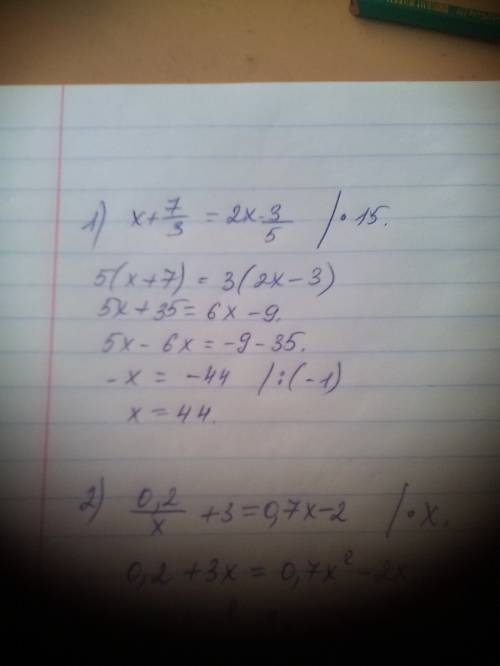 1) x + 7/3 = 2x - 3/5 | · 15.
5(x + 7) = 3(2x - 3)
5x + 35 = 6x - 9.
5x - 6x = -9 - 35.
-x = -44 | : (-1)
x = 44.
2) 0,2/x + 3 = 0,7x - 2 | · x.
0,2 + 3x = 0,7x² - 2x